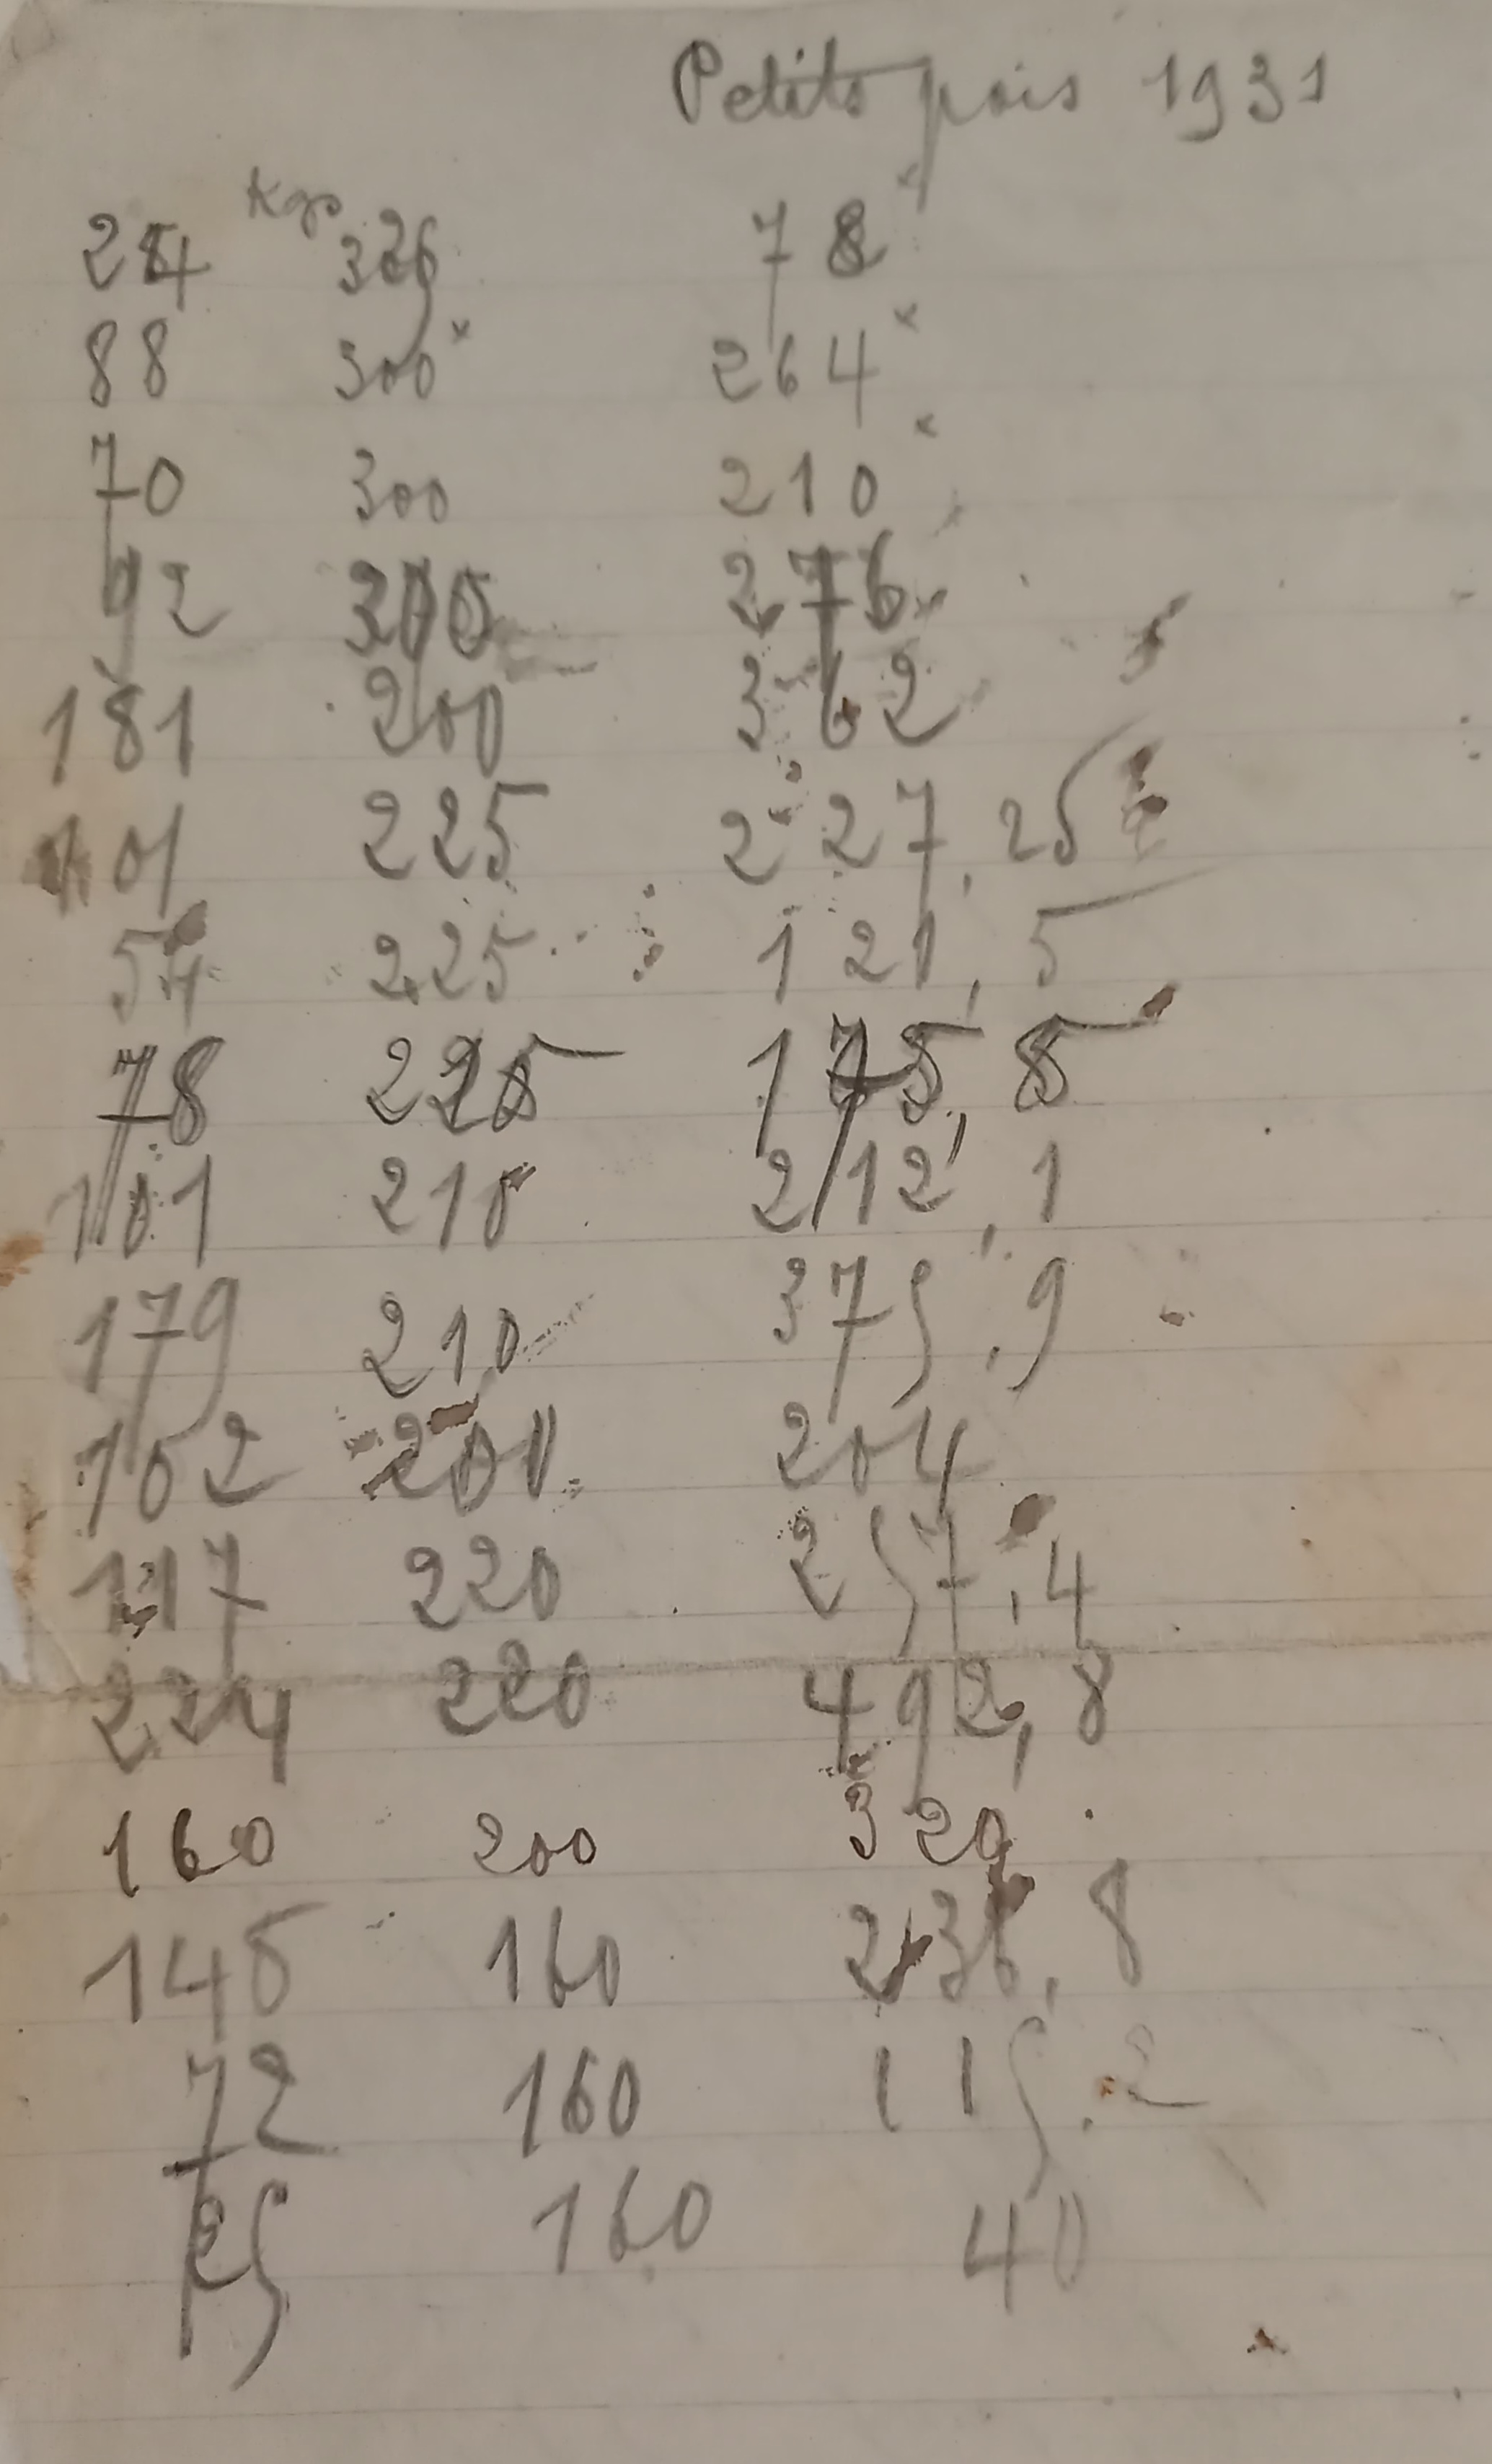 Petits pois 1931
24 Kgs 78
88 300 264
70 300 210
92 300 276
181 200 362
101 225 227,25
54 225 121,5
78 225 175,5
101 210 212,1
179 210 375,9
102 200 204
117 220 257,4
224 220 492,8
160 200 320
148 160 236,8
72 160 115,2
25 160 40